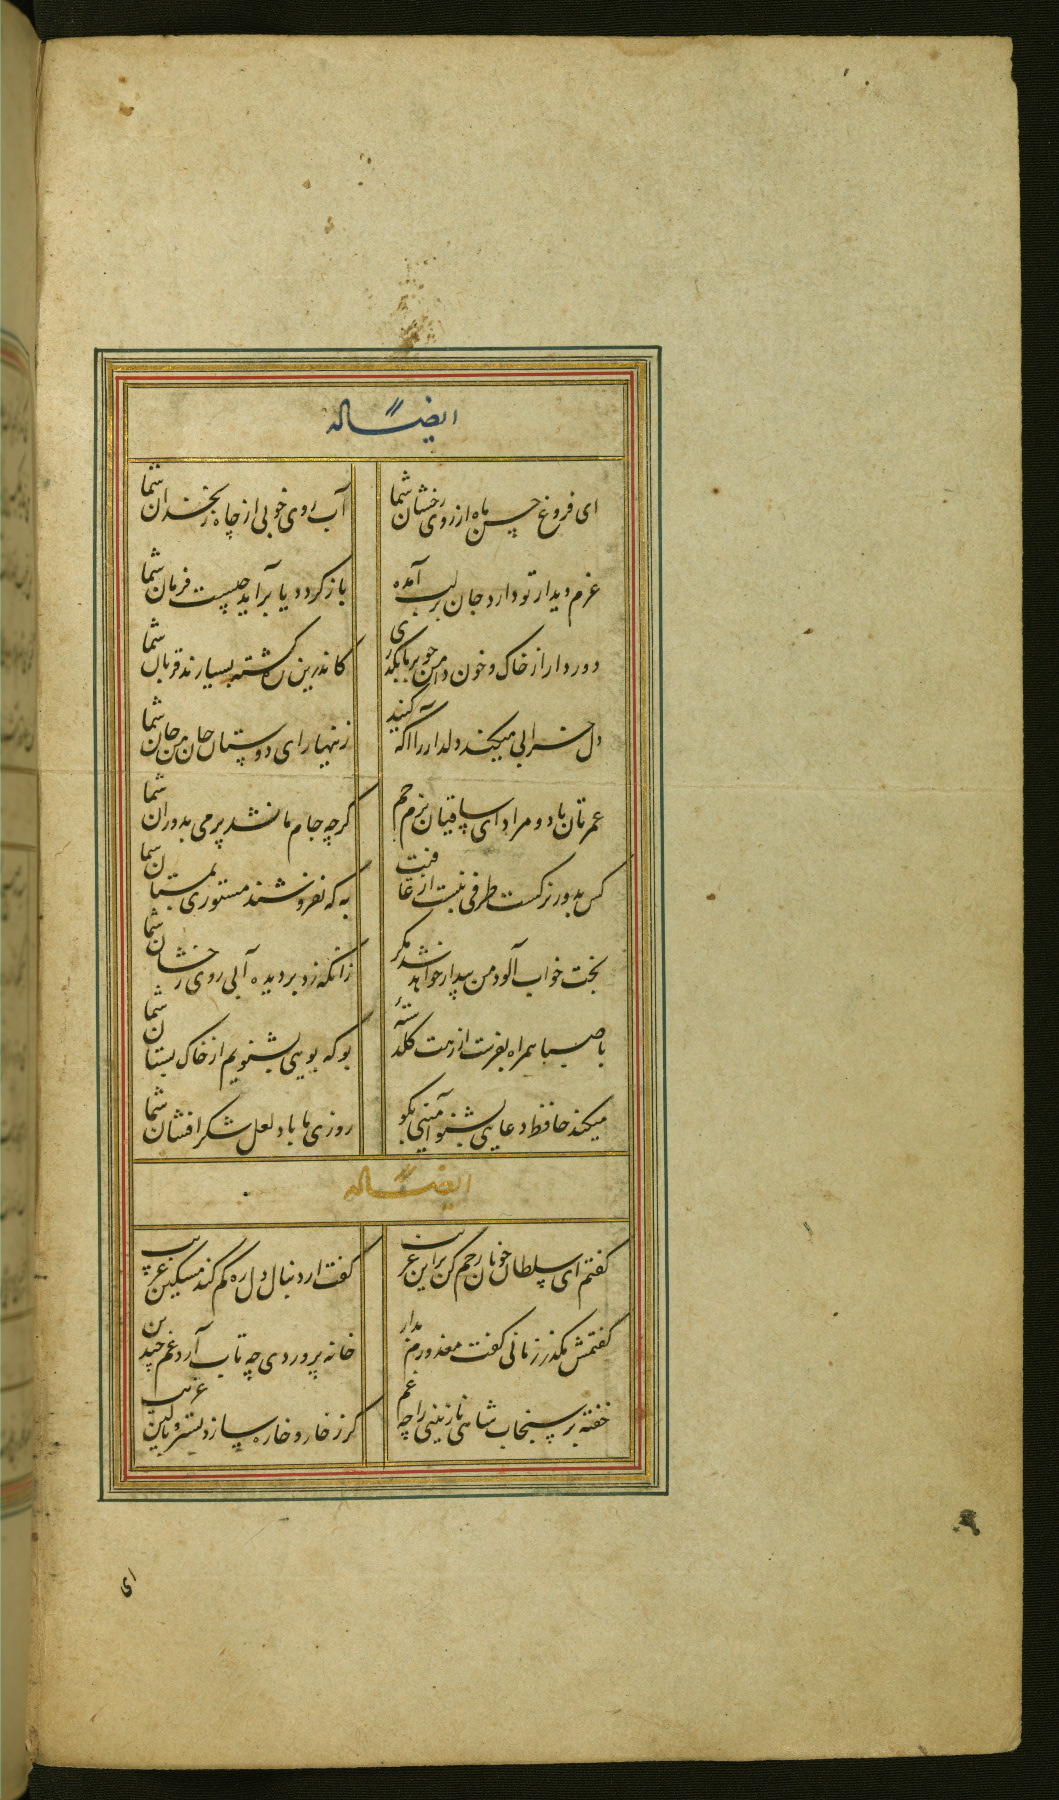 ایضاً له
ای فروغ حسن ماه از روی رخشان شما
آب روی خوبی از چاه زنخدان شما
عزم دیدار تو دارد جان بر لب آمده
باز گردد یا برآید چیست فرمان شما
دور دار از خاک و خون دامن چو بر ما بگذری
کاندرین ره کشته بسیارند قربان شما
دل خرابی میکند دلدار را آگه کنید
زینهار ای دوستان جان من جان شما
عمرتان باد و مراد ای ساقیان بزم جم
گرچه جام ما نشد پر می بدوران شما
کس بدور نرگست طرفی نبست از عافیت
به که نفروشند مستوری بمستان شما
بخت خواب آلود من بیدار خواهد شد مگر
زانکه زد بر دیده آبی روی رخشان شما
با صبا همراه بفرست از رخت گلدسته
بو که بویی بشنویم از خاک بستان شما
میکند حافظ دعایی بشنو آمینی بگو
روزی ما باد لعل شکر افشان شما
ایضاً له
گفتم ای سلطان خوبان رحم کن بر این غریب
گفت از دنبال دل ره گم کند مسکین غریب
گفتمش مگذر زمانی گفت معذورم مدار
خانه پروردی چه تاب آرد غم چندین غریب
خفته بر سنجاب شاهی نازنینی را چه غم
گر ز خار و خاره سازد بستر و بالین غریب
ای